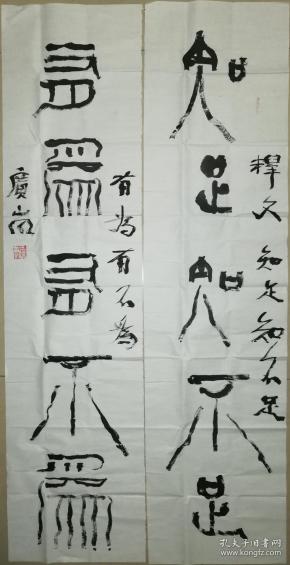 知足知不足
釋文 知足知不足
有為有不為
有为有不为
廣嵐
孔夫子旧书网